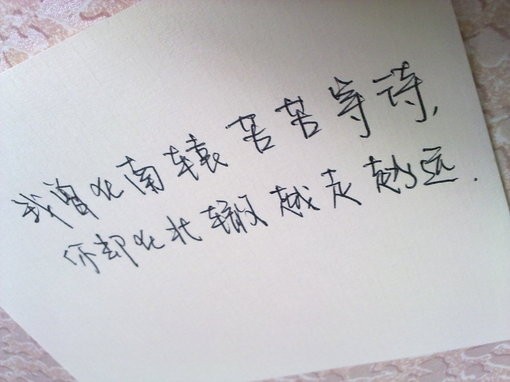 我曾他南辕苦苦等待,
你却他北辙越走越远.